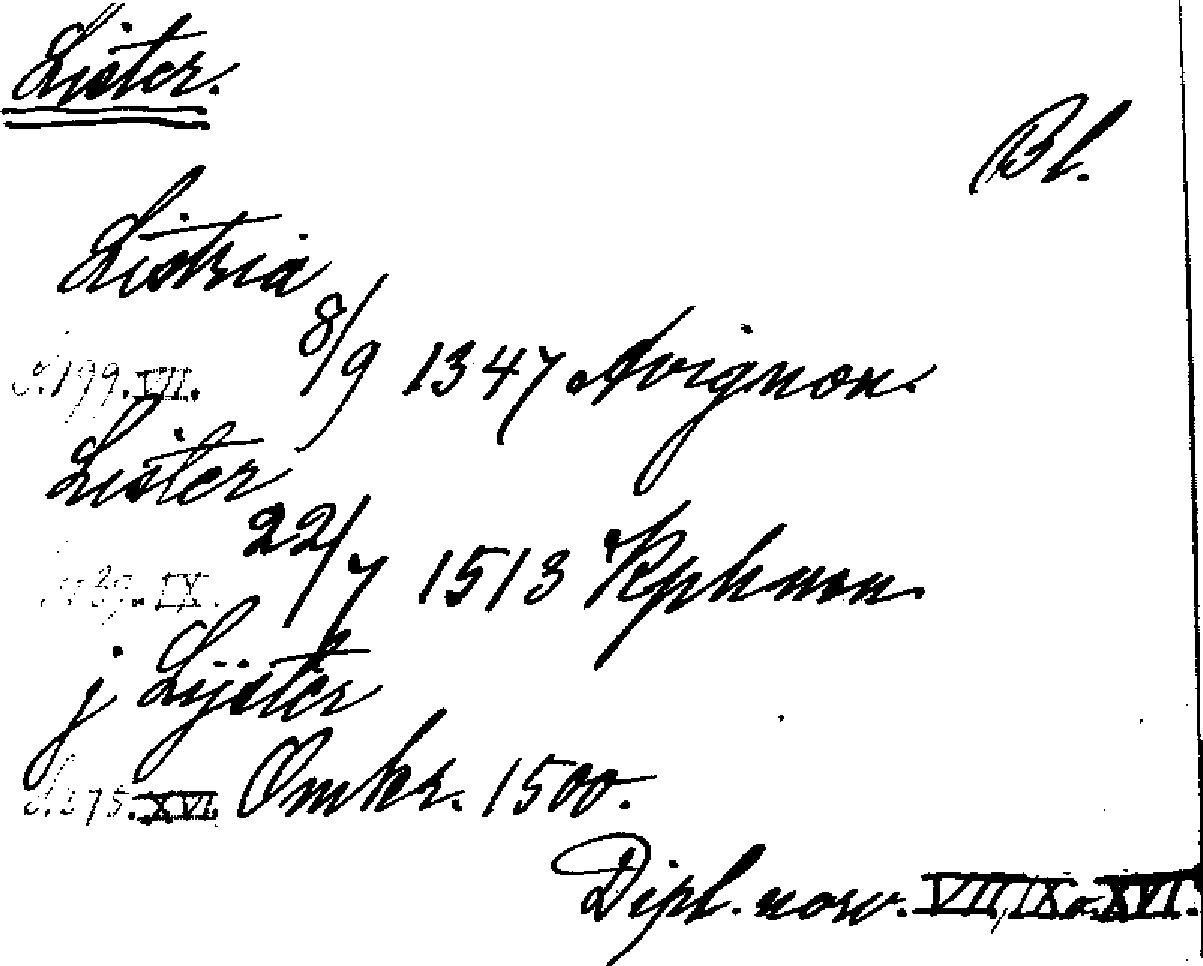 Lister.
Bl.
Listria
s. 199. VII. 8/9 1347 Avignon.
Lister
IX. 22/7 1513 Kphmn.
j Lijster
s. 275. XVI. Omkr. 1500.
Dipl. norv. VII, IX o. XVI.